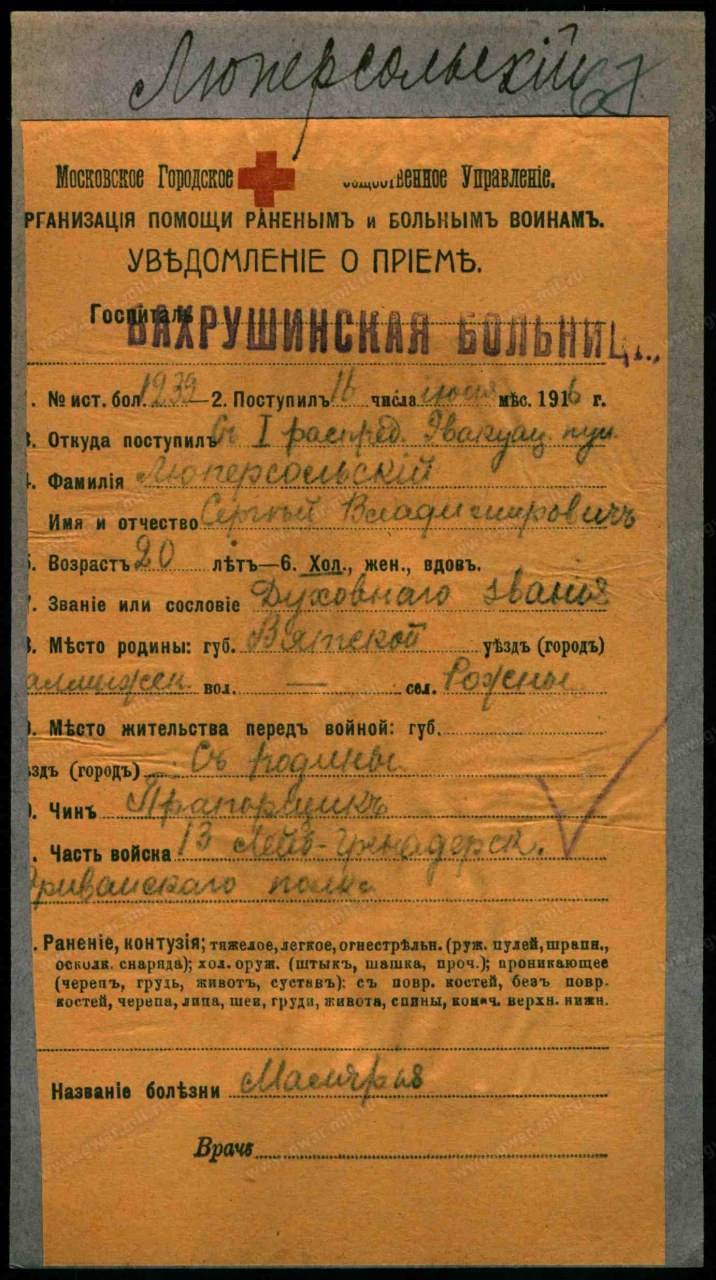 Люперсольскій
Московское Городское Общественное Управленіе.
РГАНИЗАЦІЯ ПОМОЩИ РАНЕНЫМЪ и БОЛЬНЫМЪ ВОИНАМЪ.
УВѢДОМЛЕНІЕ О ПРІЕМѢ.
Госпиталь БАХРУШИНСКАЯ БОЛЬНИЦ
1. № ист. бол. 1239 — 2. Поступилъ 16 числа мѣс. 1916 г.
3. Откуда поступилъ Съ I распред. Эвакуац. пун.
4. Фамилія Люперсольскій
Имя и отчество Сергѣй Владимировичъ
5. Возрастъ 20 лѣтъ—6. Хол., жен., вдов.
7. Званіе или сословіе Духовнаго званія
8. Мѣсто родины: губ. Вятской уѣздъ (городъ)
вол. — сел. Рожки
9. Мѣсто жительства передъ войной: губ.
ѣздъ (городъ) Съ родины
0. Чинъ Прапорщикъ
. Часть войска 13 Лейб-Гренадерск.
Эриванскаго полка
. Раненіе, контузія; тяжелое, легкое, огнестрѣльн. (руж. пулей, шрапн.,
осколк. снаряда); хол. оруж. (штыкъ, шашка, проч.); проникающее
(черепъ, грудь, животъ, суставъ): съ повр. костей, безъ повр.
костей, черепа, лица, шеи, груди, живота, спины, конеч. верхн. нижн.
Названіе болѣзни Малярія
Врачъ